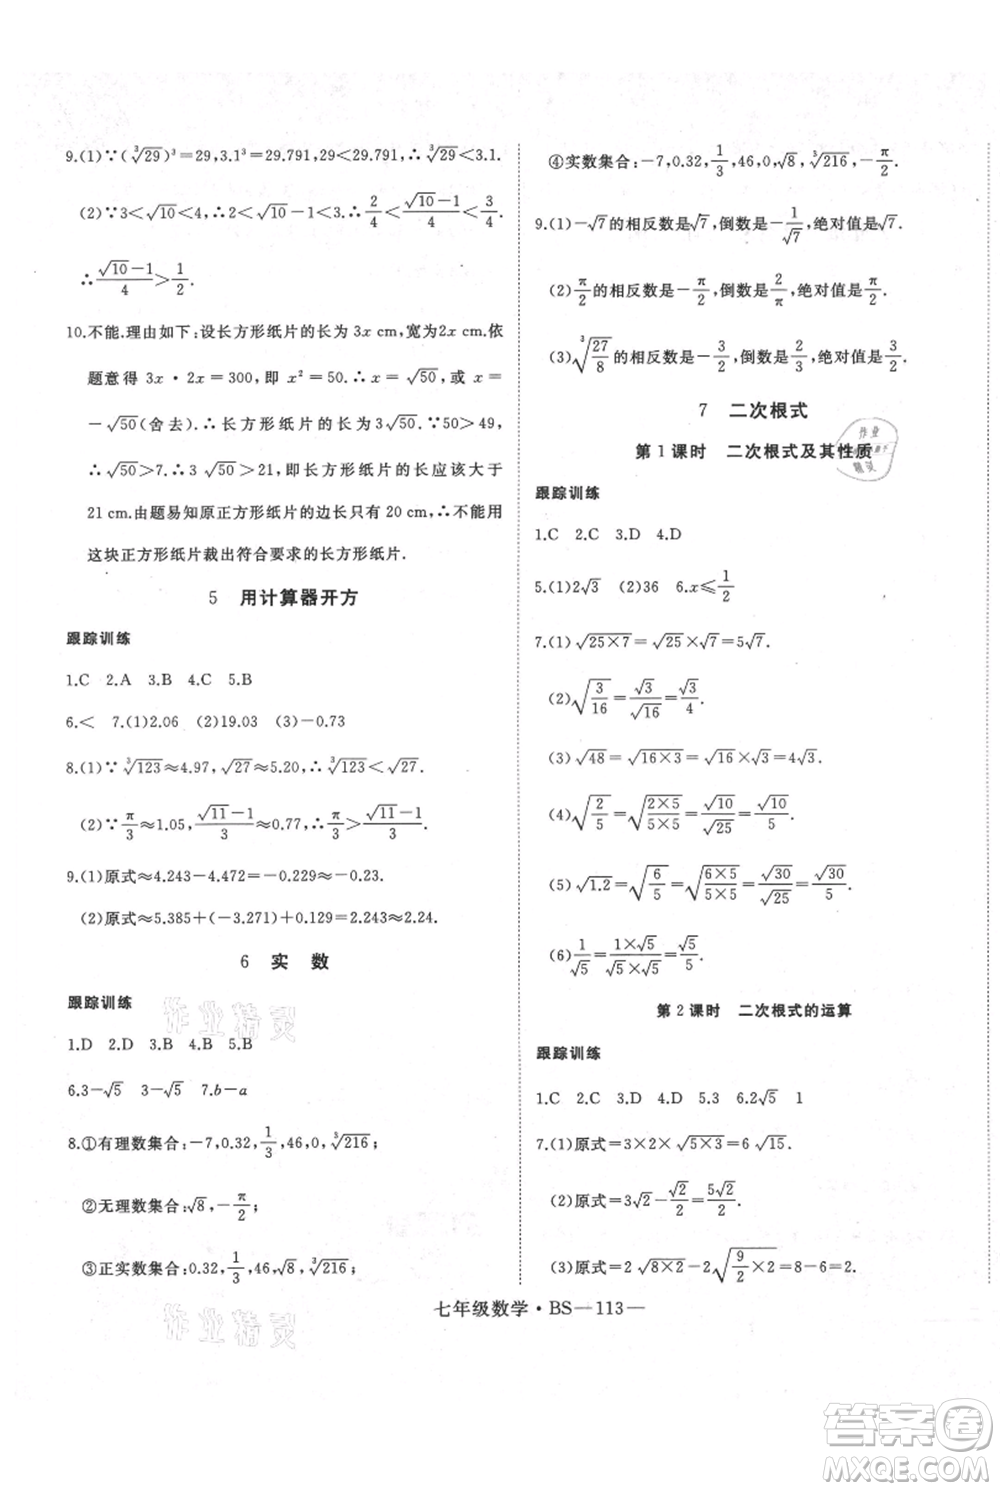 9.(1)∵(∛29)³=29,3.1³=29.791,29<29.791,∴∛29<3.1.
(2)∵3<√10<4,∴2<√10-1<3.∴2/4<(√10-1)/4<3/4.
∴(√10-1)/4>1/2.
10.不能.理由如下:设长方形纸片的长为3x cm,宽为2x cm.依
题意得 3x·2x=300,即 x²=50.∴x=√50,或 x=
-√50(舍去).∴长方形纸片的长为 3√50 cm.∵50>49,
∴√50>7.∴3√50>21,∴长方形纸片的长应该大于
21 cm.由题易知原正方形纸片的边长只有 20 cm,∴不能用
这块正方形纸片裁出符合要求的长方形纸片.
5 用计算器开方
跟踪训练
1.C 2.A 3.B 4.C 5.B
6.< 7.(1)2.06 (2)19.03 (3)-0.73
8.(1)∵∛123≈4.97,√27≈5.20,∴∛123<√27.
(2)∵π/3≈1.05,(√11-1)/3≈0.77,∴π/3>(√11-1)/3.
9.(1)原式≈4.243-4.472=-0.229≈-0.23.
(2)原式≈5.385+(-3.271)+0.129=2.243≈2.24.
6 实 数
跟踪训练
1.D 2.D 3.B 4.C 5.D
6.3-√5 3-√5 7.b-a
8.①有理数集合:-7,0.32,1/3,46,0,∛216;
②无理数集合:√8,-π/2;
③正实数集合:0.32,1/3,46,√8,∛216;
④实数集合:-7,0.32,1/3,46,0,√8,∛216,-π/2.
9.(1)-√7的相反数是√7,倒数是-1/√7,绝对值是√7.
(2)π/2的相反数是-π/2,倒数是2/π,绝对值是π/2.
(3)∛(27/8)的相反数是-3/2,倒数是2/3,绝对值是3/2.
7 二次根式
第1课时 二次根式及其性质
作业
精灵
跟踪训练
1.C 2.C 3.D 4.D
5.(1)2√3 (2)36 6.x≤1/2
7.(1)√(25×7)=√25×√7=5√7.
(2)√(3/16)=√3/√16=√3/4.
(3)√48=√(16×3)=√16×√3=4√3.
(4)√(2/5)=√((2×5)/(5×5))=√10/√25=√10/5.
(5)√1.2=√(6/5)=√((6×5)/(5×5))=√30/√25=√30/5.
(6)1/√5=(1×√5)/(√5×√5)=√5/5.
第2课时 二次根式的运算
跟踪训练
1.C 2.C 3.D 4.D 5.3 6.2√5 1
7.(1)原式=3×2×√(5×3)=6√15.
(2)原式=3√2-√2/2=5√2/2.
(3)原式=2√(8×2)-2√(9/2×2)=2.
七年级数学·BS—113—
作业精灵
作业精灵
答案卷
MXQE.COM